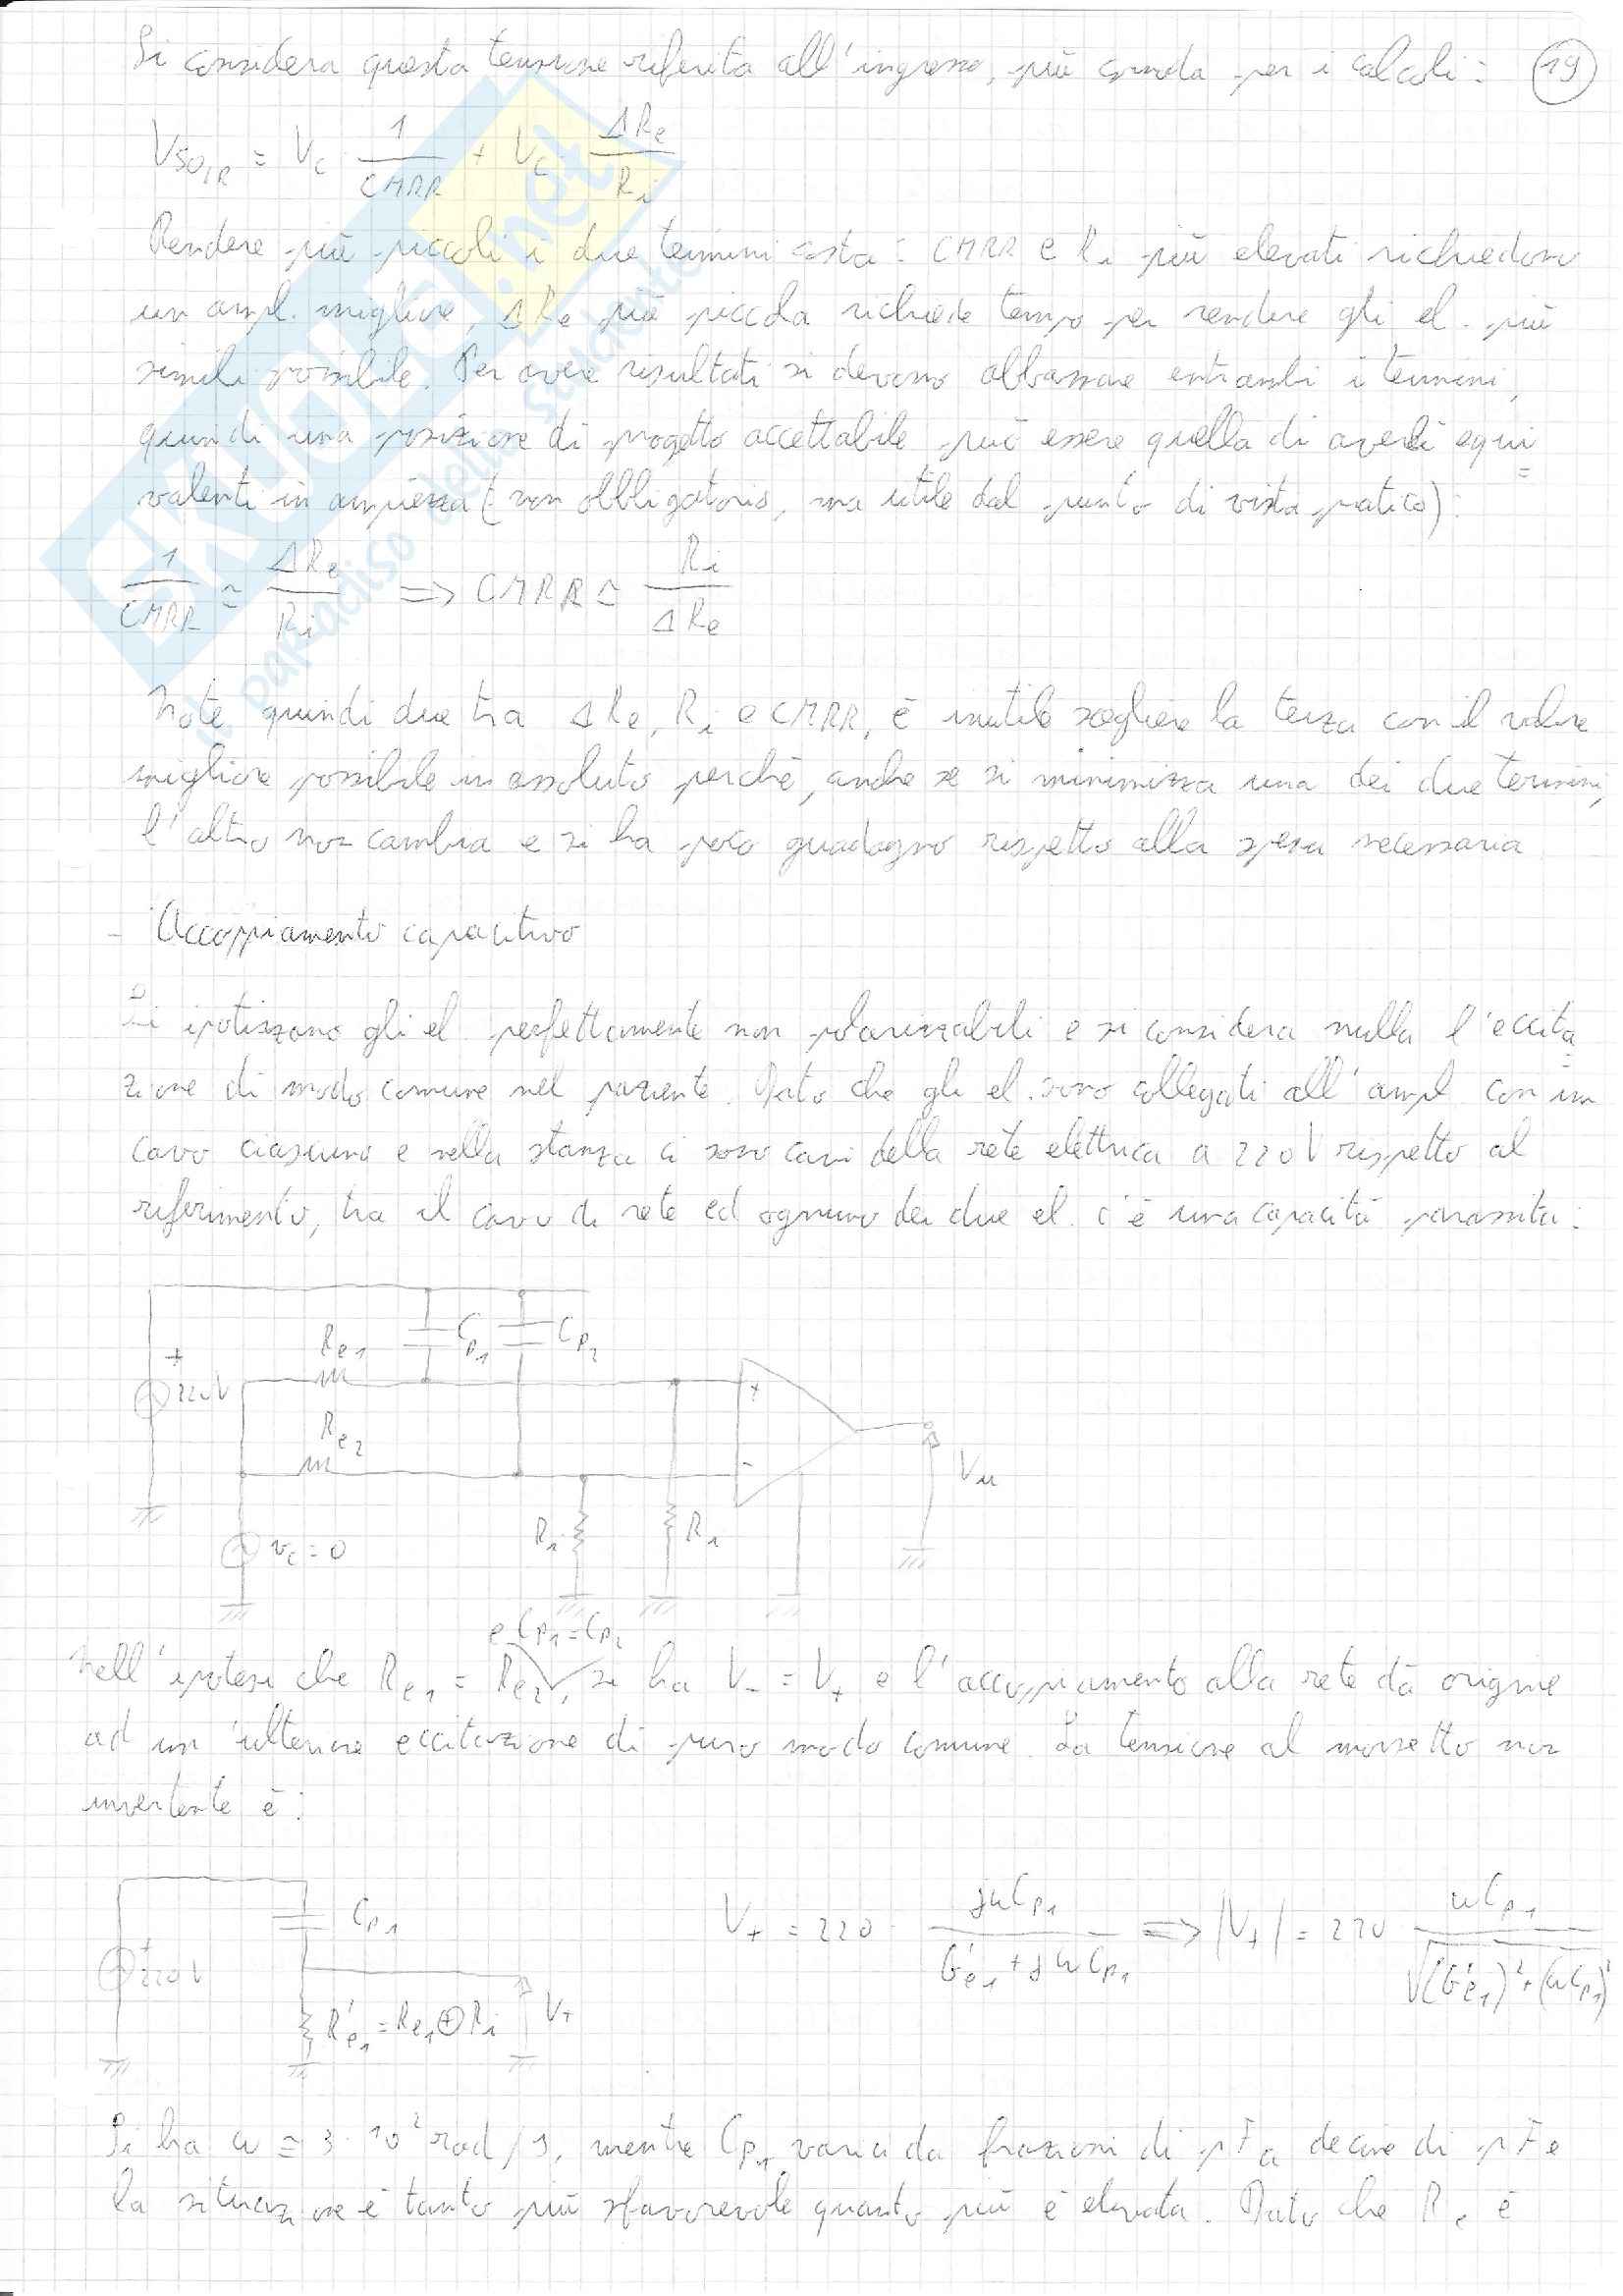 Si considera questa tensione riferita all'ingresso, più comoda per i calcoli: 19
V_SO,IR = V_C 1/CMRR + V_C ΔRe/Ri
Rendere più piccoli i due termini costa: CMRR e Ri più elevati richiedono
un ampl. migliore, ΔRe più piccola richiede tempo per rendere gli el. più
simili possibile. Per avere risultati si devono abbassare entrambi i termini,
quindi una posizione di progetto accettabile può essere quella di averli equi
valenti in ampiezza (non obbligatorio, ma utile dal punto di vista pratico):
1/CMRR ≃ ΔRe/Ri ⇒ CMRR ≃ Ri/ΔRe
Note quindi due tra ΔRe, Ri e CMRR, è inutile scegliere la terza con il valore
migliore possibile in assoluto perchè, anche se si minimizza una dei due termini,
l'altro non cambia e si ha poco guadagno rispetto alla spesa necessaria
- Accoppiamento capacitivo
Si ipotizzano gli el. perfettamente non polarizzabili e si considera nulla l'eccita
zione di modo comune nel paziente. Dato che gli el. sono collegati all'ampl. con un
cavo ciascuno e nella stanza ci sono cavi della rete elettrica a 220V rispetto al
riferimento, tra il cavo di rete ed ognuno dei due el. c'è una capacità parassita:
Re1 Cp1 Cp2
+ 220V
Re2
+ - Vu
Ri Ri
vc = 0
e Cp1 = Cp2
Nell'ipotesi che Re1 = Re2, si ha V- = V+ e l'accoppiamento alla rete dà origine
ad un'ulteriore eccitazione di puro modo comune. La tensione al morsetto non
invertente è:
Cp1
+ 220V
R'e1 = Re1 ⊕ Ri V+
V+ = 220 · jωCp1/(G'e1 + jωCp1) ⇒ |V+| = 220 · ωCp1/√((G'e1)² + (ωCp1)²)
Si ha ω ≅ 3·10² rad/s, mentre Cp1 varia da frazioni di pF a decine di pF e
la situazione è tanto più sfavorevole quanto più è elevata. Dato che Re è
SKUOLA.net
il paradiso dello studente